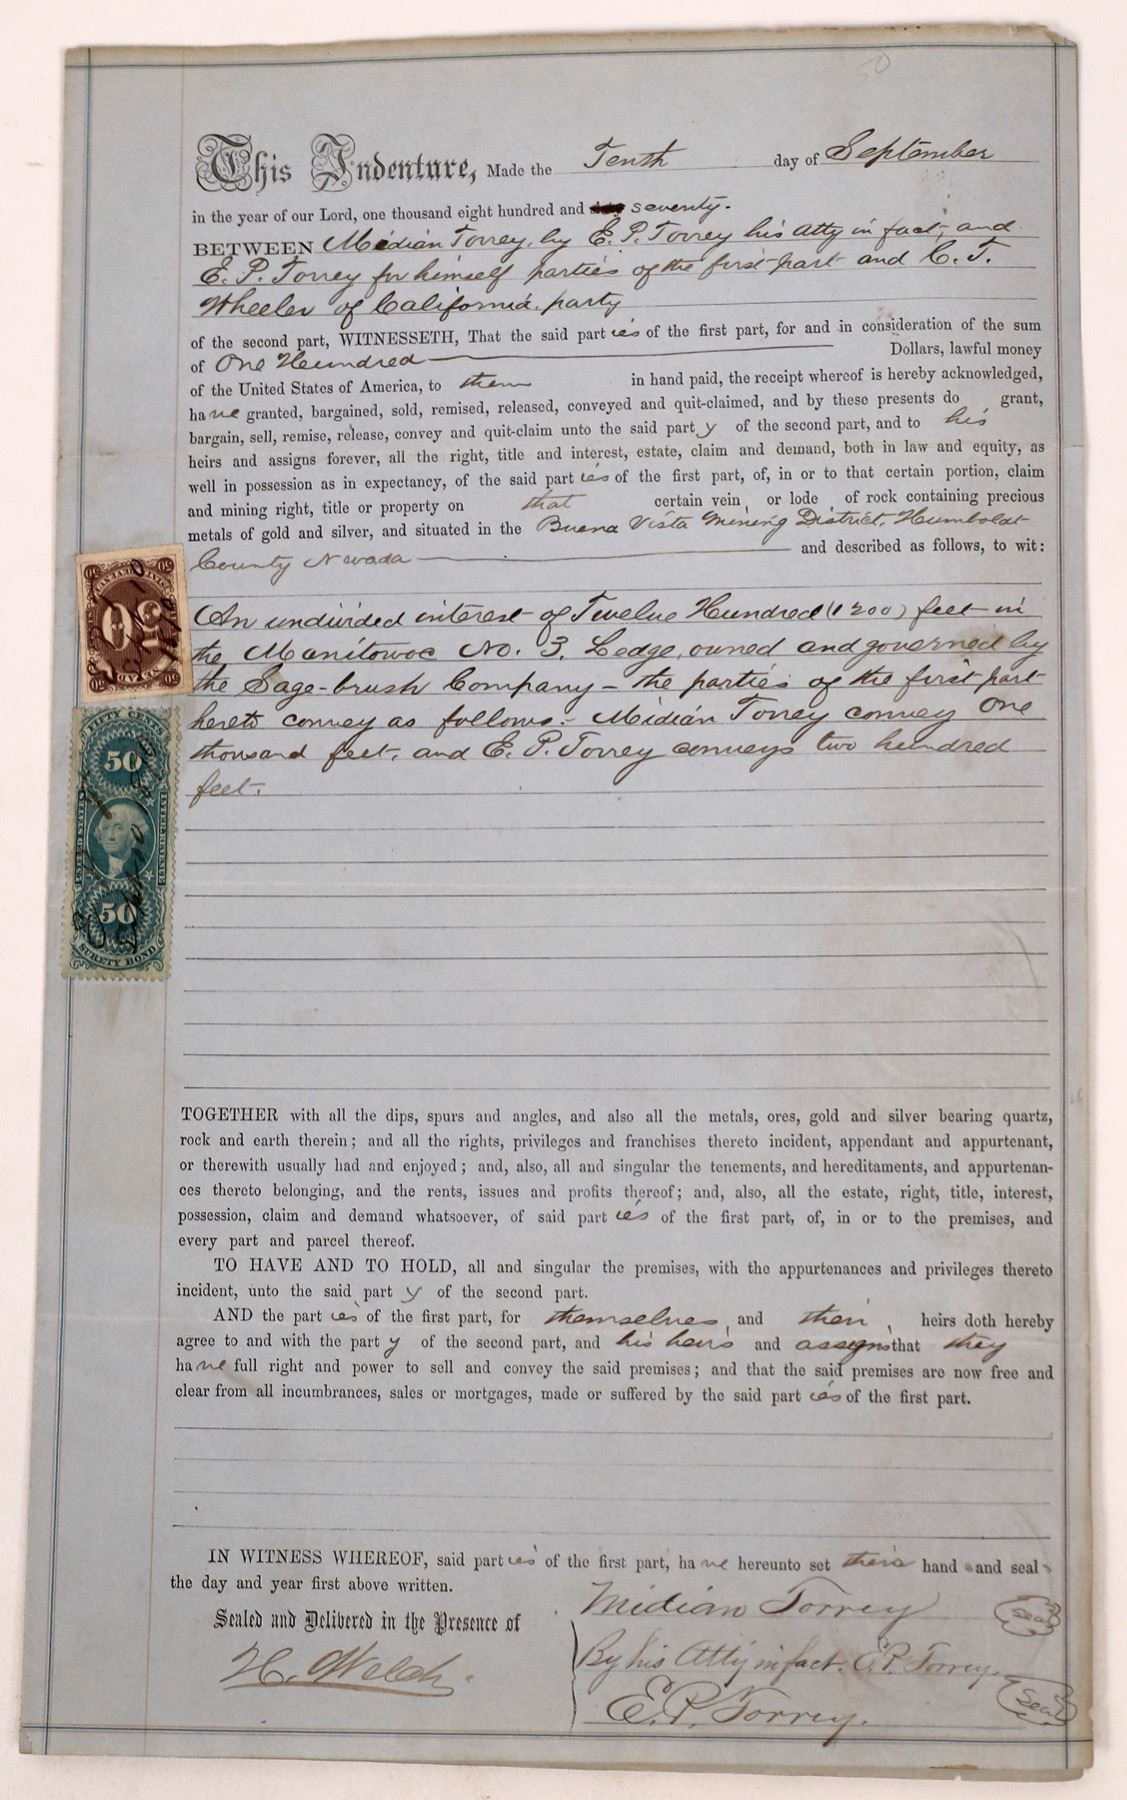 50
This Indenture, Made the Tenth day of September
in the year of our Lord, one thousand eight hundred and seventy.
BETWEEN Midian Torrey, by E. P. Torrey his atty in fact, and
E. P. Torrey for himself parties of the first part and C. T.
Wheeler of California, party
of the second part, WITNESSETH, That the said parties of the first part, for and in consideration of the sum
of One Hundred Dollars, lawful money
of the United States of America, to them in hand paid, the receipt whereof is hereby acknowledged,
have granted, bargained, sold, remised, released, conveyed and quit-claimed, and by these presents do grant,
bargain, sell, remise, release, convey and quit-claim unto the said party of the second part, and to his
heirs and assigns forever, all the right, title and interest, estate, claim and demand, both in law and equity, as
well in possession as in expectancy, of the said parties of the first part, of, in or to that certain portion, claim
and mining right, title or property on that certain vein, or lode of rock containing precious
metals of gold and silver, and situated in the Buena Vista Mining District, Humboldt
County Nevada and described as follows, to wit:
An undivided interest of Twelve Hundred (1200) feet in
the Manitowoc No. 3. Ledge, owned and governed by
the Sage-brush Company – the parties of the first part
hereto convey as follows:– Midian Torrey convey One
thousand feet, and E. P. Torrey conveys two hundred
feet.
50
FIFTY CENTS
50
UNITED STATES
INTER. REVENUE
50
SURETY BOND
TOGETHER with all the dips, spurs and angles, and also all the metals, ores, gold and silver bearing quartz,
rock and earth therein; and all the rights, privileges and franchises thereto incident, appendant and appurtenant,
or therewith usually had and enjoyed; and, also, all and singular the tenements, and hereditaments, and appurtenan-
ces thereto belonging, and the rents, issues and profits thereof; and, also, all the estate, right, title, interest,
possession, claim and demand whatsoever, of said parties of the first part, of, in or to the premises, and
every part and parcel thereof.
TO HAVE AND TO HOLD, all and singular the premises, with the appurtenances and privileges thereto
incident, unto the said party of the second part.
AND the parties of the first part, for themselves, and their, heirs doth hereby
agree to and with the party of the second part, and his heirs and assigns that they
have full right and power to sell and convey the said premises; and that the said premises are now free and
clear from all incumbrances, sales or mortgages, made or suffered by the said parties of the first part.
IN WITNESS WHEREOF, said parties of the first part, have hereunto set theirs hands and seals
the day and year first above written.
Sealed and Delivered in the Presence of
Midian Torrey (seal)
H. Welch.
By his Atty in fact. E. P. Torrey.
E. P. Torrey. (seal)